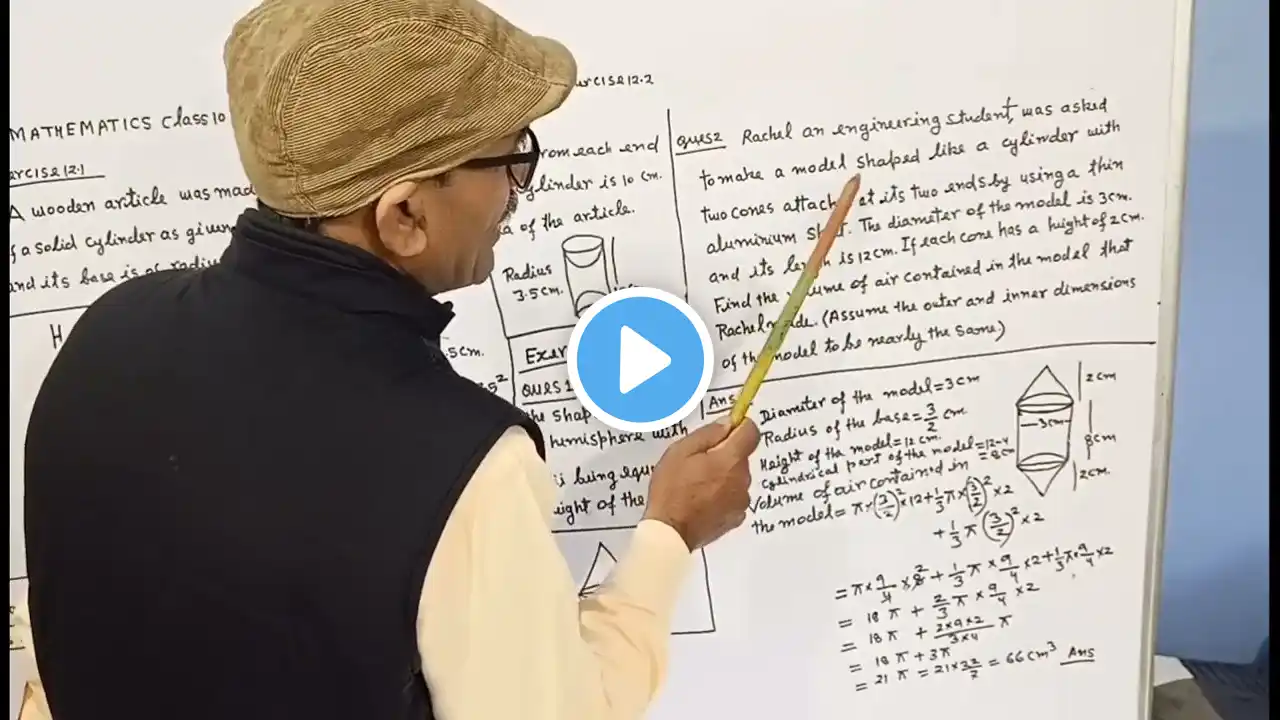 MATHEMATICS Class 10
Exercise 12.2
Exercise 12.1
A wooden article was made
from each end
of a solid cylinder as given
cylinder is 10 cm.
and its base is of radius
of the article.
Radius
3.5cm.
.5cm.
QUES 1
the shape
hemisphere with
being
height of the
QUES 2 Rachel an engineering student, was asked
to make a model shaped like a cylinder with
two cones at its two ends by using a thin
aluminium The diameter of the model is 3cm.
and its is 12cm. If each cone has a height of 2cm.
Find the of air contained in the model that
Rachel (Assume the outer and inner dimensions
of the model to be nearly the same.)
Ans
Diameter of the model = 3 cm
Radius of the base = 3/2 cm.
Height of the model = 12 cm.
cylindrical part of the model = 12-4
= 8cm
Volume of air contained in
the model = π×(3/2)²×12+1/3π×(3/2)²×2
+1/3π(3/2)²×2
2cm
3cm
8cm
2cm.
= π×9/4×8²+1/3π×9/4×2+1/3π×9/4×2
= 18π + 2/3π×9/4×2
= 18π + 2×9×2/3×4 π
= 18π+3π
= 21π = 21×22/7 = 66cm³ Ans